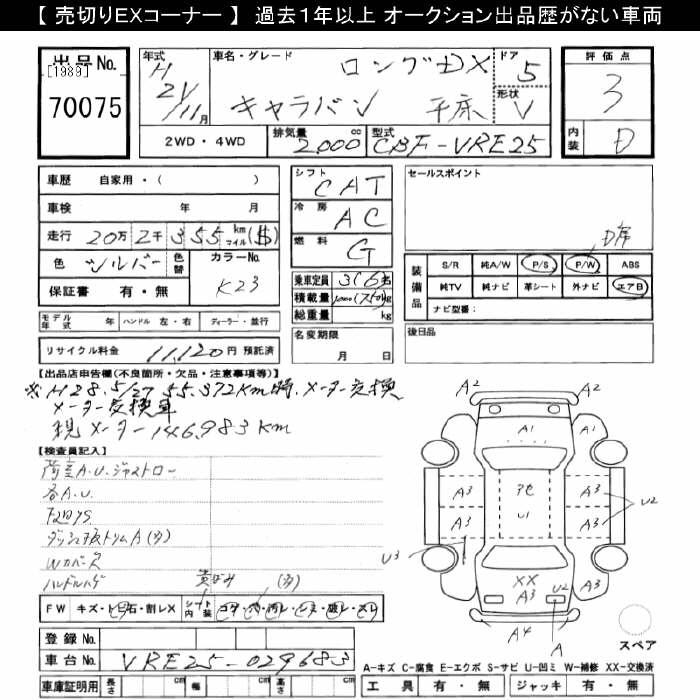 【 売切りEXコーナー 】 過去1年以上 オークション出品歴がない車両
出品No.
[1989]
70075
年式 H 21/11月
車名・グレード ロングDX
キャラバン 平床
ドア 5
形状 V
評価点 3
内装 D
2WD・4WD 排気量 2000 cc 型式 CBF-VRE25
車歴 自家用・( )
車検 年 月
走行 20万2千355 km マイル ($)
色 シルバー 色替 カラーNo. K23
保証書 有・無
シフト CAT
冷房 AC
燃料 G
乗車定員 3(6)名
積載量 kg
総重量 kg
セールスポイント
D席
装備品 S/R 純A/W P/S P/W ABS
純TV 純ナビ 革シート 外ナビ エアB
ナビ型番:
モデル年式 年 ハンドル 左・右 ディーラー・並行
リサイクル料金 11,120 円 預託済
名変期限 月 日
後日品
【出品店申告欄(不良箇所・欠品・注意事項等)】
※H28.5/27 55,372Km時、メーター交換
メーター交換車
現メーター146,983Km
【検査員記入】
荷室A.U.ジャストロー
各A.U.
下回りS
ダッシュ板トリムA(多)
Wカバーズ
ハンドルハゲ
(多)
FW キズ・ト石・割レX シート内装 コゲ・穴・汚レ・シミ・破レ・スレ
登録No.
車台No. VRE25-029683
車庫証明用 長さ cm 幅 cm 高さ cm
A2 A2
A1 A1
A3 A3 A3 U2
U1
A3 A3
U3
XX A3 U2 A3
A4 A
スペア
A-キズ C-腐食 E-エクボ S-サビ U-凹ミ W-補修 XX-交換済
工具 有・無 ジャッキ 有・無